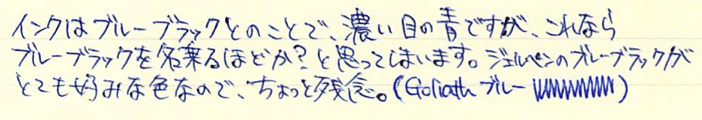 インクはブルーブラックとのことで、濃い目の青ですが、これなら
ブルーブラックを名乗るほどか？と思ってしまいます。ジェルペンのブルーブラックが
とても好みな色なので、ちょっと残念。(Goliath ブルー )